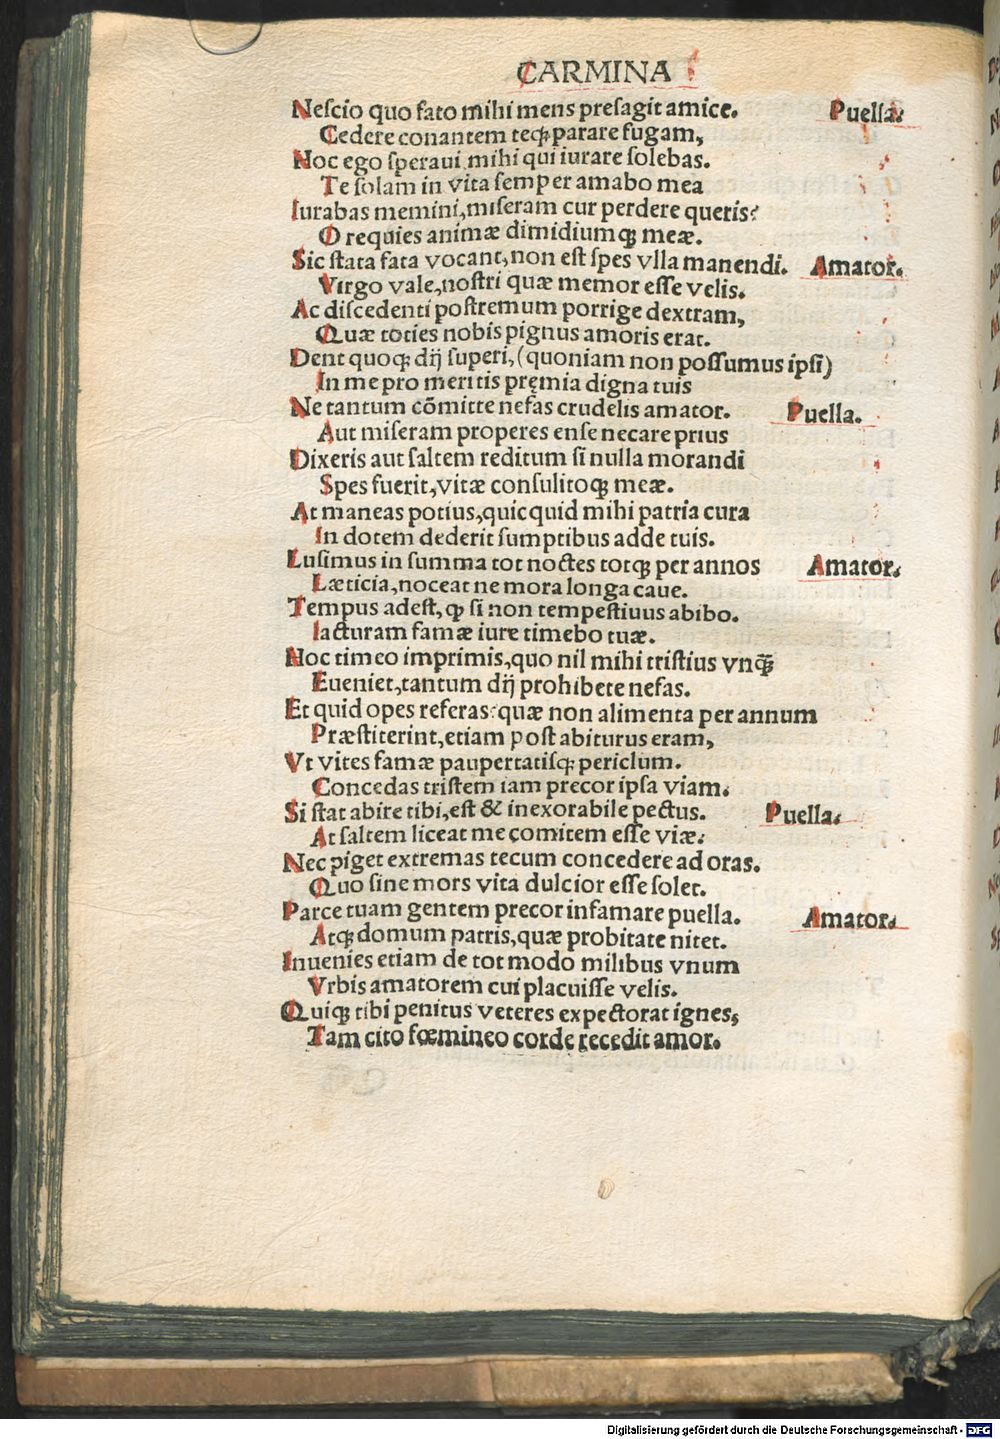 CARMINA
Neſcio quo fato mihi mens preſagit amice. Puella.
Cedere conantem teqꝫ parare fugam,
Noc ego ſperaui mihi qui iurare ſolebas.
Te ſolam in vita ſemper amabo mea
Iurabas memini, miſeram cur perdere queris?
O requies animæ dimidiumqꝫ meæ.
Sic ſtata fata vocant, non eſt ſpes vlla manendi. Amator.
Virgo vale, noſtri quæ memor eſſe velis.
Ac diſcedenti poſtremum porrige dextram,
Quæ toties nobis pignus amoris erat.
Dent quoqꝫ dij ſuperi, (quoniam non poſſumus ipſi)
In me pro meritis pręmia digna tuis
Ne tantum cõmitte nefas crudelis amator. Puella.
Aut miſeram properes enſe necare prius
Dixeris aut ſaltem reditum ſi nulla morandi
Spes fuerit, vitæ conſulitoqꝫ meæ.
At maneas potius, quicquid mihi patria cura
In dotem dederit ſumptibus adde tuis.
Luſimus in ſumma tot noctes totqꝫ per annos Amator.
Læticia, noceat ne mora longa caue.
Tempus adeſt, ꝙ ſi non tempeſtiuus abibo.
Iacturam famæ iure timebo tuæ.
Noc timeo imprimis, quo nil mihi triſtius vnq̃ꝫ
Eueniet, tantum dij prohibete nefas.
Et quid opes referas? quæ non alimenta per annum
Præſtiterint, etiam poſt abiturus eram,
Vt vites famæ paupertatiſqꝫ periclum.
Concedas triſtem iam precor ipſa viam.
Si ſtat abire tibi, eſt & inexorabile pectus. Puella.
At ſaltem liceat me comitem eſſe viæ.
Nec piget extremas tecum concedere ad oras.
Quo ſine mors vita dulcior eſſe ſolet.
Parce tuam gentem precor infamare puella. Amator.
Atqꝫ domum patris, quæ probitate nitet.
Inuenies etiam de tot modo milibus vnum
Vrbis amatorem cui placuiſſe velis.
Quiqꝫ tibi penitus veteres expectorat ignes,
Tam cito fœmineo corde recedit amor.
Digitalisierung gefördert durch die Deutsche Forschungsgemeinschaft - DFG